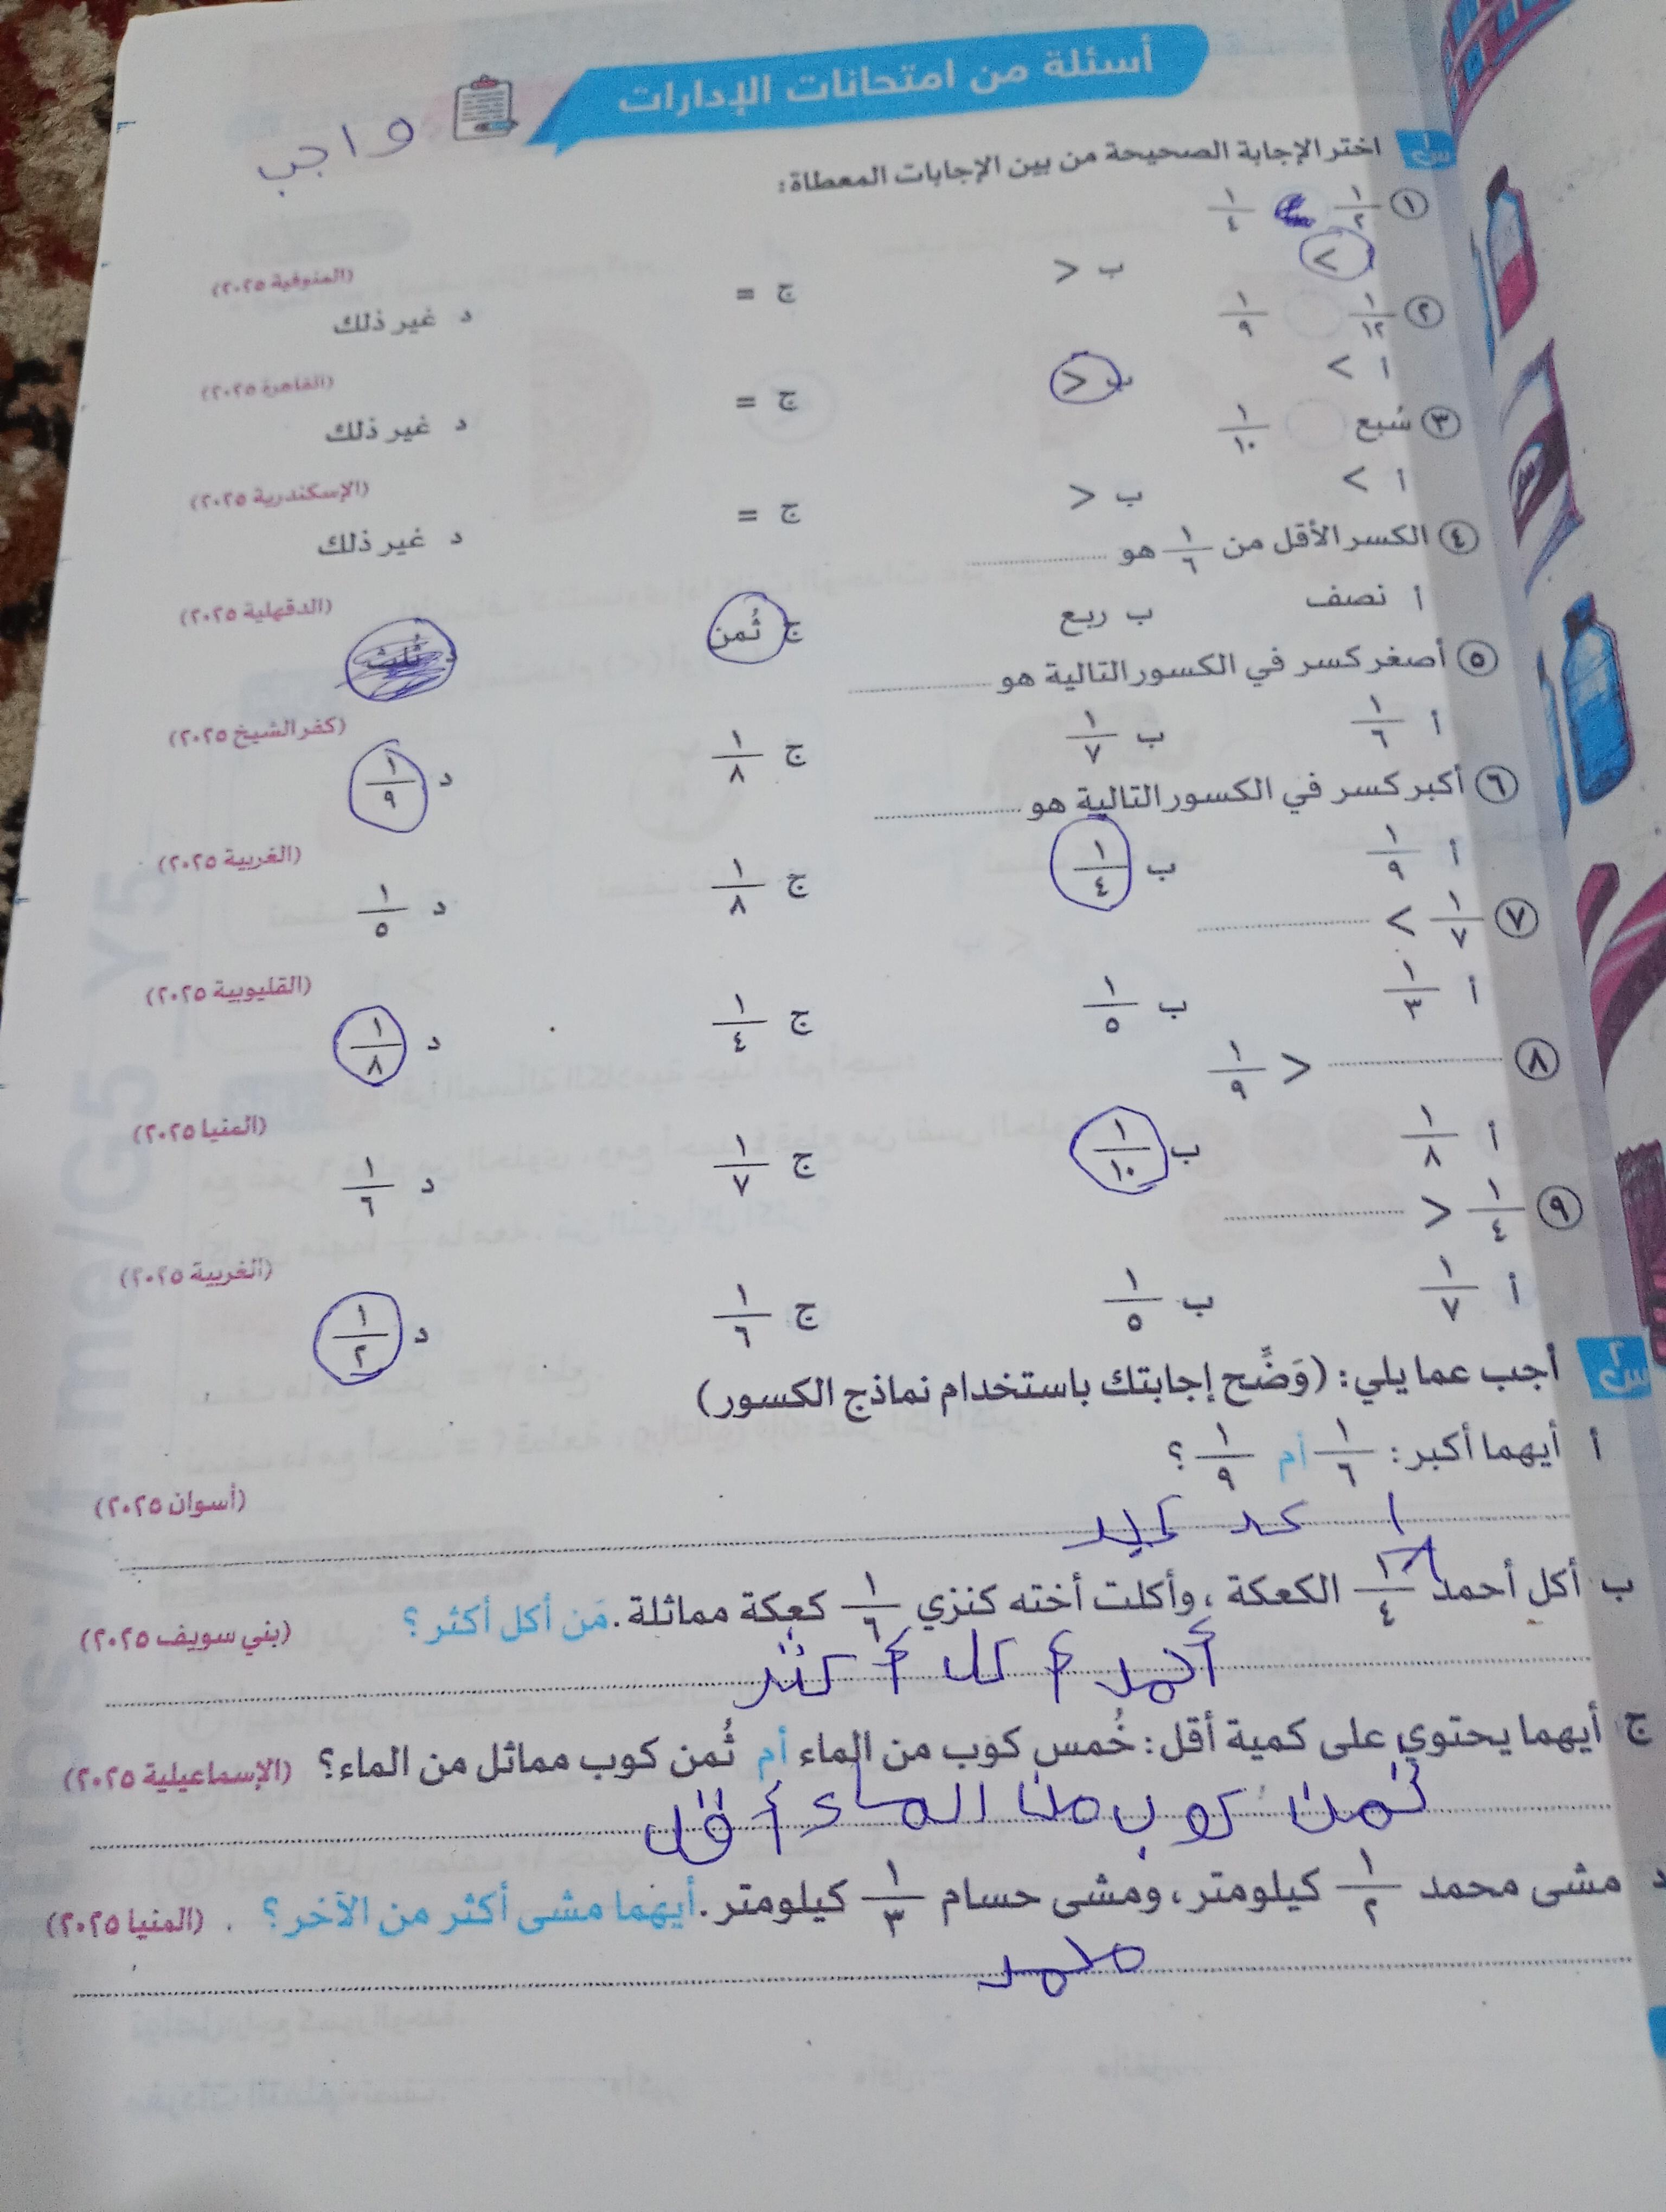 أسئلة من امتحانات الإدارات
واجب
س١ اختر الإجابة الصحيحة من بين الإجابات المعطاة:
١ ١/٢ ١/٤ (المنوفية ٢٠٢٥)
أ > ب < ج = د غير ذلك
٢ ١/١٢ ١/٩ (القاهرة ٢٠٢٥)
أ > ب < ج = د غير ذلك
٣ سُبع ١/١٠ (الإسكندرية ٢٠٢٥)
أ > ب < ج = د غير ذلك
٤ الكسر الأقل من ١/٦ هو .......... (الدقهلية ٢٠٢٥)
أ نصف ب ربع ج ثُمن د ثُلث
٥ أصغر كسر في الكسور التالية هو .......... (كفر الشيخ ٢٠٢٥)
أ ١/٦ ب ١/٧ ج ١/٨ د ١/٩
٦ أكبر كسر في الكسور التالية هو .......... (الغربية ٢٠٢٥)
أ ١/٩ ب ١/٤ ج ١/٨ د ١/٥
٧ ١/٧ > .......... (القليوبية ٢٠٢٥)
أ ١/٣ ب ١/٥ ج ١/٤ د ١/٨
٨ .......... < ١/٩ (المنيا ٢٠٢٥)
أ ١/٨ ب ١/١٠ ج ١/٧ د ١/٦
٩ ١/٤ < .......... (الغربية ٢٠٢٥)
أ ١/٧ ب ١/٥ ج ١/٦ د ١/٢
س٢ أجب عما يلي: (وَضِّح إجابتك باستخدام نماذج الكسور)
أ أيهما أكبر: ١/٦ أم ١/٩ ؟ (أسوان ٢٠٢٥)
ب أكل أحمد ١/٤ الكعكة، وأكلت أخته كنزي ١/٦ كعكة مماثلة. مَن أكل أكثر؟ (بني سويف ٢٠٢٥)
أحمد أكل أكثر
ج أيهما يحتوي على كمية أقل: خُمس كوب من الماء أم ثُمن كوب مماثل من الماء؟ (الإسماعيلية ٢٠٢٥)
ثمن كوب من الماء أقل
د مشى محمد ١/٢ كيلومتر، ومشى حسام ١/٣ كيلومتر. أيهما مشى أكثر من الآخر؟ (المنيا ٢٠٢٥)
محمد
https://t.me/G5 Y5